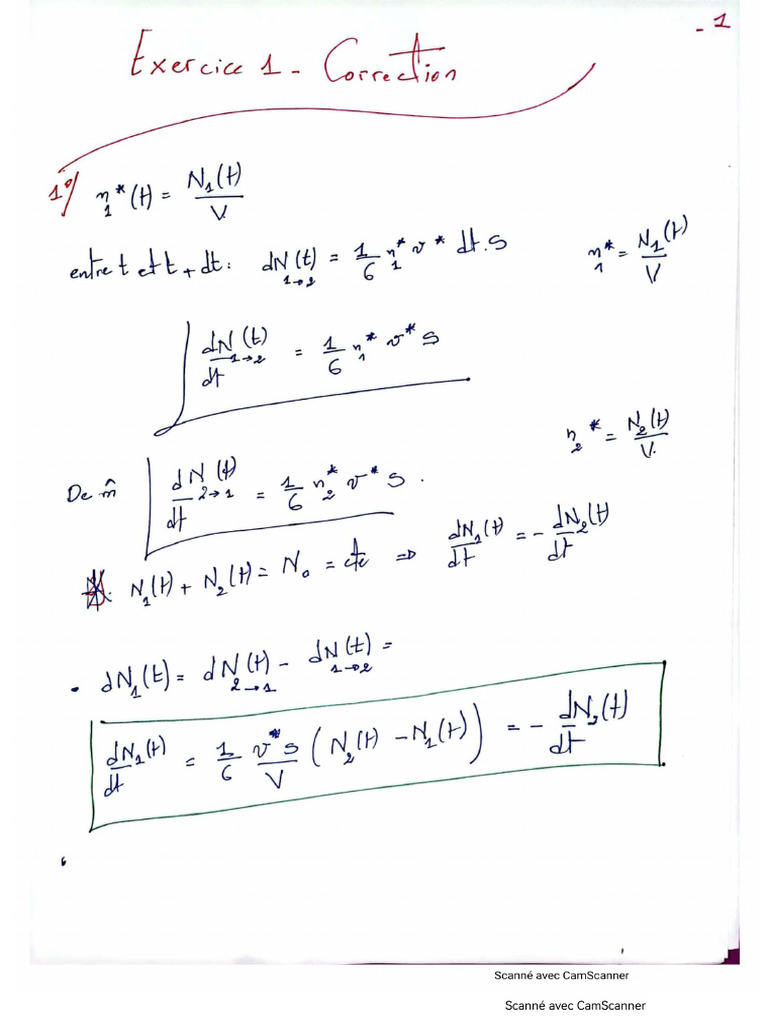 - 1
Exercice 1 - Correction
1°/ n₁*(t) = N₁(t)/V
entre t et t + dt : dN₁→₂(t) = 1/6 n₁* v* dt.s   n₁* = N₁(t)/V
dN₁→₂(t)/dt = 1/6 n₁* v* s
n₂* = N₂(t)/V
De m̂ dN₂→₁(t)/dt = 1/6 n₂* v* s.
N₁(t) + N₂(t) = N₀ = cte ⇒ dN₁(t)/dt = - dN₂(t)/dt
• dN₁(t) = dN₂→₁(t) - dN₁→₂(t) =
dN₁(t)/dt = 1/6 v*s/V (N₂(t) - N₁(t)) = - dN₂(t)/dt
Scanné avec CamScanner
Scanné avec CamScanner